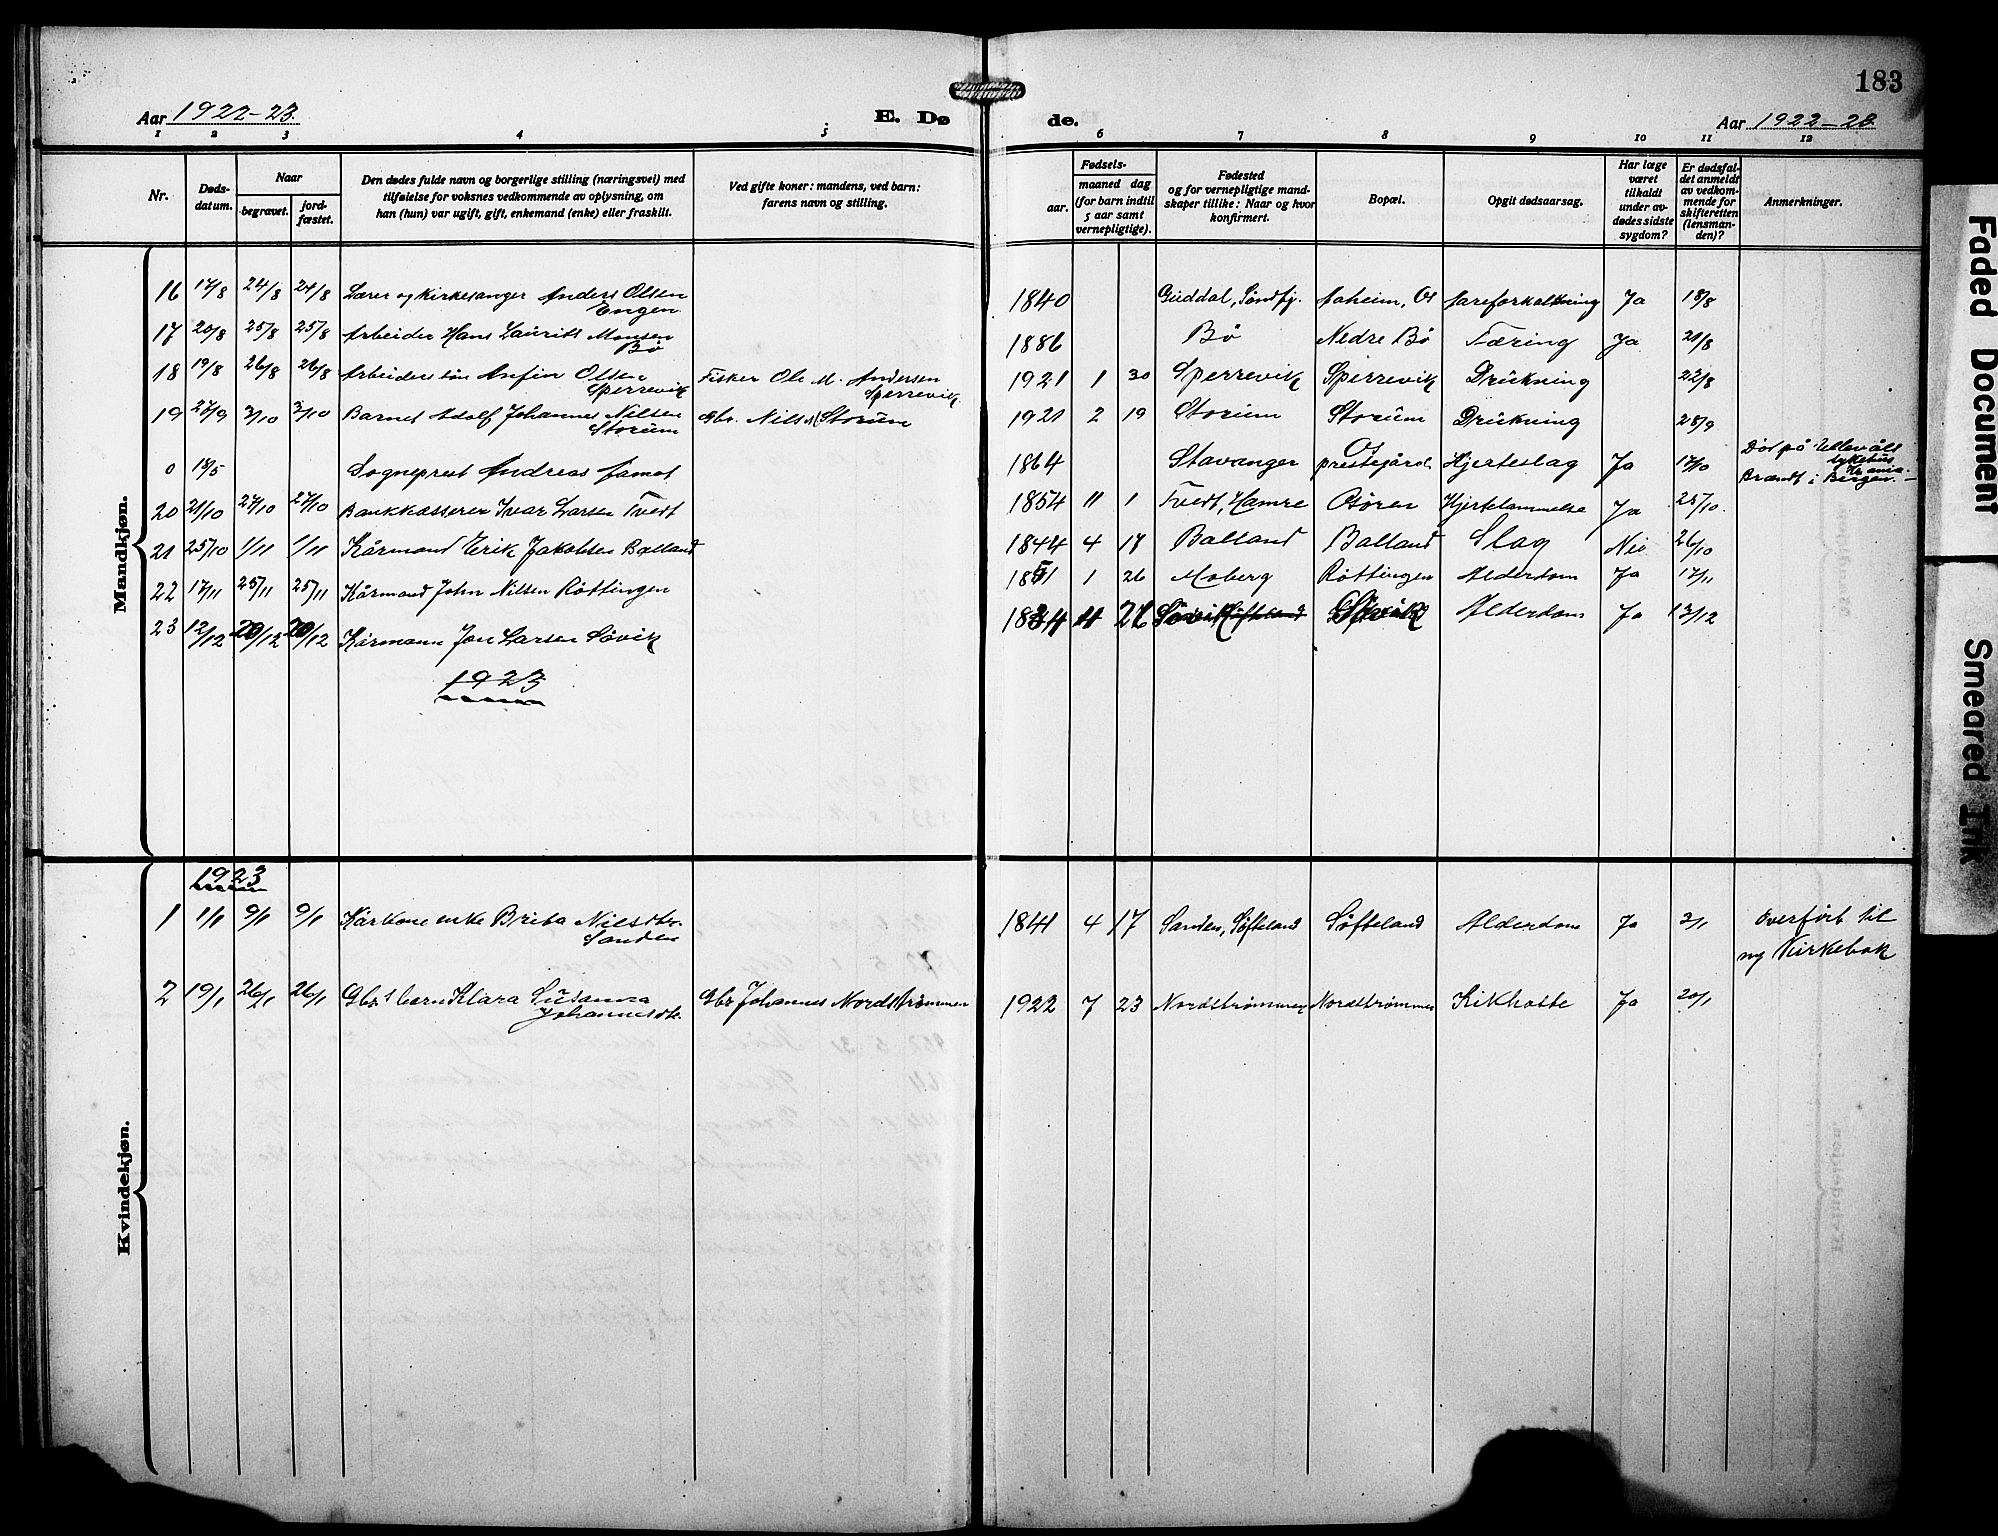 183
Aar 1922-23.
E. Dø
de.
Aar 1922-23.
1 2 3 4 5 6 7 8 9 10 11 12
Nr.
Døds-
datum.
Naar
begravet.
jord-
fæstet.
Den dødes fulde navn og borgerlige stilling (næringsvei) med
tilføielse for voksnes vedkommende av oplysning, om
han (hun) var ugift, gift, enkemand (enke) eller fraskilt.
Ved gifte koner: mandens, ved barn:
farens navn og stilling.
Fødsels-
aar.
maaned dag
(for barn indtil
5 aar samt
vernepligtige).
Fødested
og for vernepligtige mand-
skaper tillike: Naar og hvor
konfirmert.
Bopæl.
Opgit dødsaarsag.
Har læge
været
tilkaldt
under av-
dødes sidste
sygdom?
Er dødsfal-
det anmeldt
av vedkom-
mende for
skifteretten
(lensman-
den)?
Anmerkninger.
Mandkjøn.
16 17/8 24/8 24/8 Lærer og Kirkesanger Anders Olsen
Engen
1840 Guddal, Søndfj. Aaheim, Os Aareforkalkning Ja 18/8
17 20/8 25/8 25/8 Arbeider Hans Laurits Monsen
Bø
1886 Bø Nedre Bø Tæring Ja 21/8
18 19/8 26/8 26/8 Arbeiders søn Anfin Olsen
Sperrevik
Fisker Ole M. Andersen
Sperrevik.
1921 1 30 Sperrevik Sperrevik Drukning 22/8
19 27/9 3/10 3/10 Barnet Adolf Johannes Nilsen
Storum
Gbr. Nils M Storum
1921 2 19 Storum Storum Drukning 28/9
0 18/5 Sogneprest Andreas Jamot
1864 Stavanger Os
prestegård Hjerteslag Ja 17/10 Død på Ullevåls
sykehus
Kr.ania.
Brændt i Bergen. -
20 21/10 27/10 27/10 Bankkasserer Ivar Larsen Tvedt
1854 11 1 Tvedt, Hamre Osøren Hjertelammelse Ja 25/10.
21 25/10 1/11 1/11 Kårmand Erik Jakobsen Balland
1844 4 17 Balland Balland Slag Nei 26/10
22 17/11 25/11 25/11 Kårmand John Nilsen Røttingen
1851 1 26 Moberg Røttingen Alderdom Ja 17/11
23 12/12 20/12 20/12 Kårmann Jon Larsen Søvik
1834 4 Søvik Alderdom Ja 13/12
1923
Kvindekjøn.
1923
1 1/1 9/1 9/1 Kårkone enke Brita Nilsdtr.
Sanden
1841 4 17 Sanden, Søfteland Søfteland Alderdom Ja 3/1 Overført til
ny Kirkebok
2 19/1 26/1 26/1 Gbr.s barn Klara Susanna
Johannesdtr.
Gbr Johannes Nordstrømmen
1922 7 23 Nordstrømmen Nordstrømmen Kikhoste Ja 20/1
Faded Document
Smeared Ink